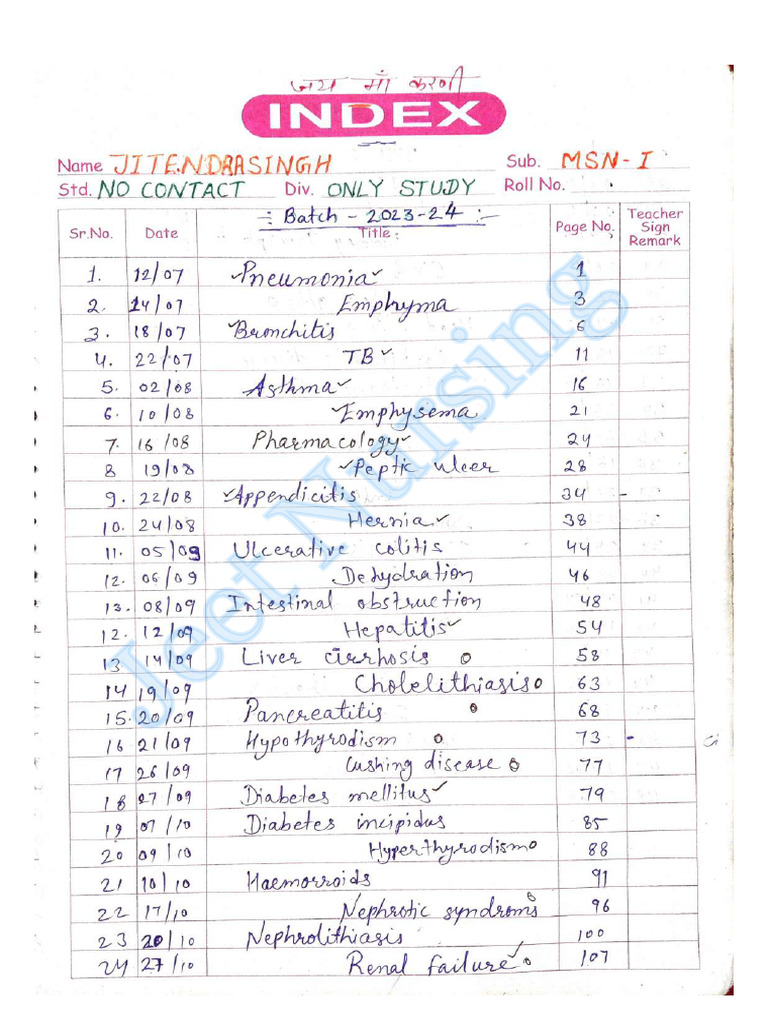 जय माँ करणी
INDEX
Name JITENDRASINGH Sub. MSN-I
Std. NO CONTACT Div. ONLY STUDY Roll No.
Batch - 2023-24
Sr.No. Date Title: Page No. Teacher Sign Remark
1. 12/07 Pneumonia 1
2. 14/07 Emphyma 3
3. 18/07 Bronchitis 6
4. 22/07 TB 11
5. 02/08 Asthma 16
6. 10/08 Emphysema 21
7. 16/08 Pharmacology 24
8 19/08 Peptic ulcer 28
9. 22/08 Appendicitis 34
10. 24/08 Hernia 38
11. 05/09 Ulcerative colitis 44
12. 06/09 Dehydration 46
13. 08/09 Intestinal obstruction 48
12. 12/09 Hepatitis 54
13 14/09 Liver cirrhosis 58
14 19/09 Cholelithiasis 63
15. 20/09 Pancreatitis 68
16 21/09 Hypothyrodism 73
17 26/09 Cushing disease 77
18 27/09 Diabetes mellitus 79
19 07/10 Diabetes incipidus 85
20 09/10 Hyperthyrodism 88
21 10/10 Haemorroids 91
22 17/10 Nephrotic syndroms 96
23 20/10 Nephrolithiasis 100
24 27/10 Renal failure 107
Jeet Nursing